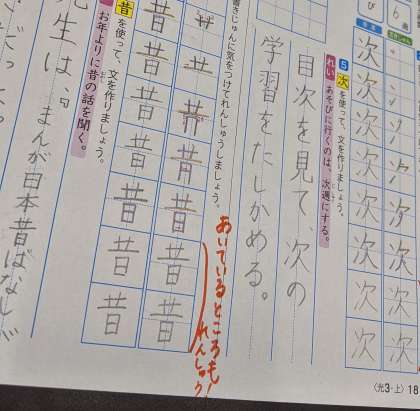 次
次
次
次
次
次
次
5 次を使って、文を作りましょう。
れい あそびに行くのは、次週にする。
目次を見て、次の
学習をたしかめる。
書きじゅんに気をつけてれんしゅうしましょう。
昔
昔
昔
昔
昔
昔
昔
昔
昔
昔
昔
昔
昔
あいているところも
れんしゅう!
昔を使って、文を作りましょう。
お年よりに昔の話を聞く。
先生は、『まんが日本昔ばなし
〈光3・上〉 18